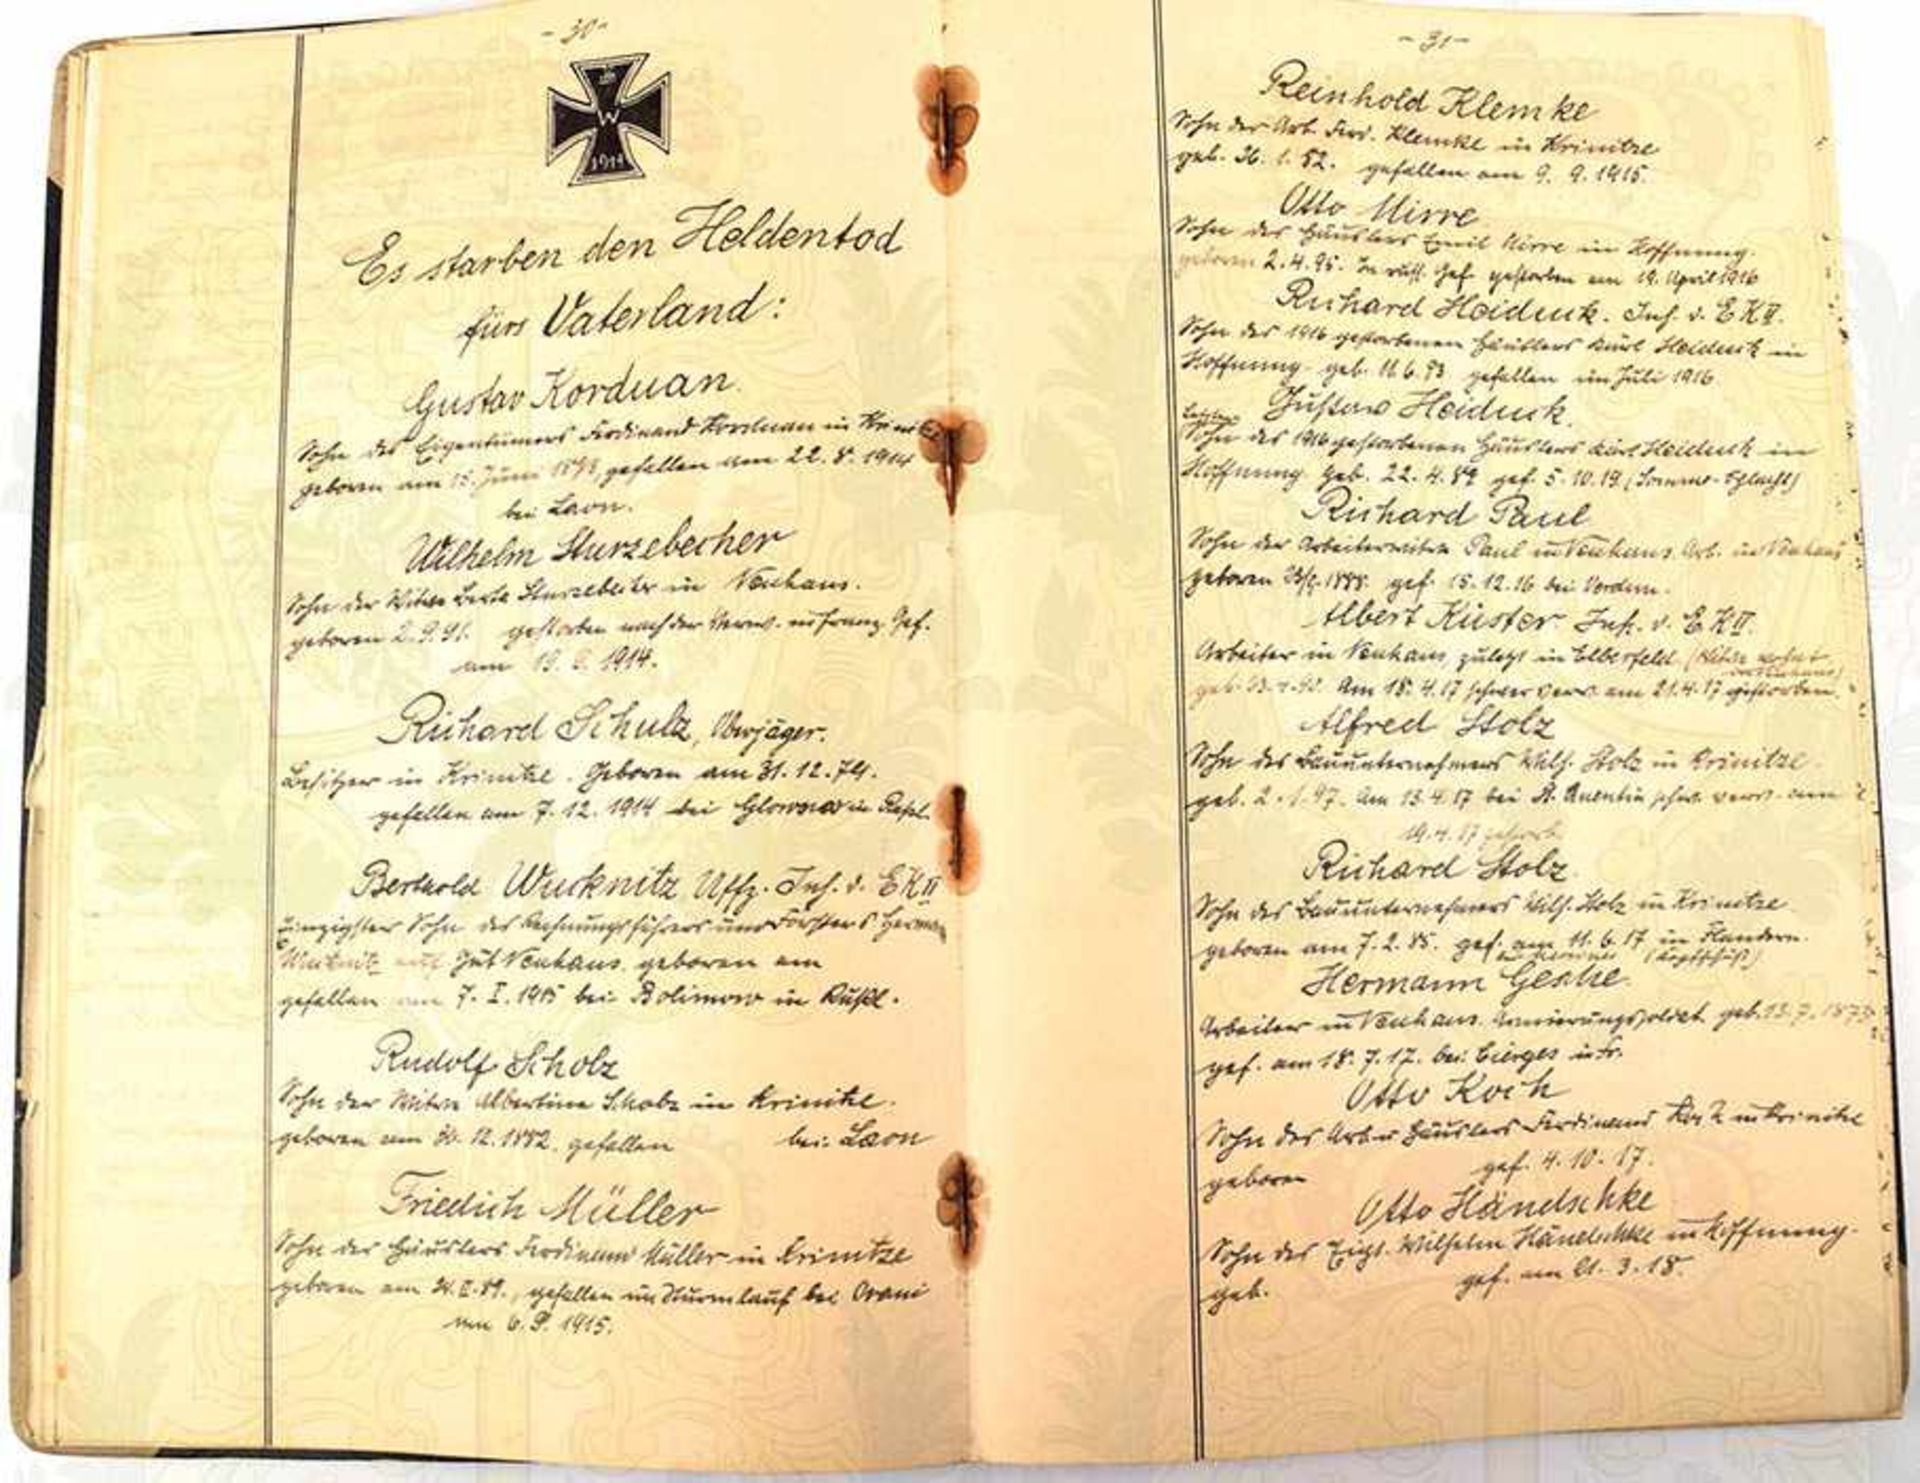 - 30 -
W
1914
Es starben den Heldentod
fürs Vaterland:
Gustav Korduan.
Sohn des Eigentümers Ferdinand Korduan in
geboren am 15. Juni gefallen am 22. 8. 1914
bei Laon.
Wilhelm Sturzebecher
Sohn der Witwe Sturzebecher in Neuhaus.
geboren 2. 9. 91. gestorben nach der Verw. in franz. Gef.
am 1914.
Richard Schulz, Oberjäger.
Besitzer in Krinitze. Geboren am 31. 12. 74.
gefallen am 7. 12. 1914 bei in Rußl.
Berthold Wucknitz Uffz. Inh. d. E K II
Einzigster Sohn des Rechnungsführers und Försters Herman
Gut Neuhaus. geboren am
gefallen am 7. I. 1915 bei Bolimow in Rußl.
Rudolf Scholz
Sohn der Witwe Albertine Scholz in Krinitze.
geboren am 30. 12. 1882. gefallen bei Laon
Friedrich Müller
Sohn des Häuslers Ferdinand Müller in Krinitze
geboren am gefallen im Sturmlauf bei Orani
am 6. 9. 1915.
- 31 -
Reinhold Klemke
Sohn des Arb. Ferd. Klemke in Krinitze
geb. 26. 1. 82. gefallen am 9. 9. 1915.
Otto Mirre
Sohn des Häuslers Emil Mirre in Hoffnung.
geboren 2. 4. 95. In russ. Gef. gestorben am 19. April 1916
Richard Heiduck. Inh. d. E K II.
Sohn des 1916 gestorbenen Häuslers Karl Heiduck in
Hoffnung. geb. 11. 6. 93 gefallen im Juli 1916
Gustav Heiduck.
Sohn des 1916 gestorbenen Häuslers Karl Heiduck in
Hoffnung. Geb. 22. 4. 89 gef. 5. 10. (Somme-Schlacht)
Richard Paul
Sohn der Arbeiterwitwe Paul in Neuhaus. Arb. in Neuhaus
geboren 1888. gef. 15. 12. 16 bei Verdun.
Albert Küster. Inh. d. E K II.
Arbeiter in Neuhaus, zuletzt in Elberfeld (Witwe wohnt
in Neuhaus)
geb. Am 18. 4. 17 schwer verw. am 21. 4. 17 gestorben.
Alfred Stolz
Sohn des Bauunternehmers Wilh. Stolz in Krinitze.
geb. 2. 1. 97. Am 13. 4. 17 bei St. Quentin schw. verw. am
19. 4. 17 gestorb.
Richard Stolz
Sohn des Bauunternehmers Wilh. Stolz in Krinitze.
geboren am 7. 2. 85. gef. am 11. 6. 17 in Flandern.
(Kopfschuß)
Hermann
Arbeiter in Neuhaus. Armierungssoldat geb. 13. 7. 1873
gef. am 18. 7. 17. bei Cierges in Fr.
Otto Koch
Sohn des Arb. u. Häuslers Ferdinand Koch in Krinitze
geboren gef. 4. 10. 17.
Otto Händschke
Sohn des Eigt. Wilhelm Händschke in Hoffnung.
geb. gef. am 21. 3. 18.